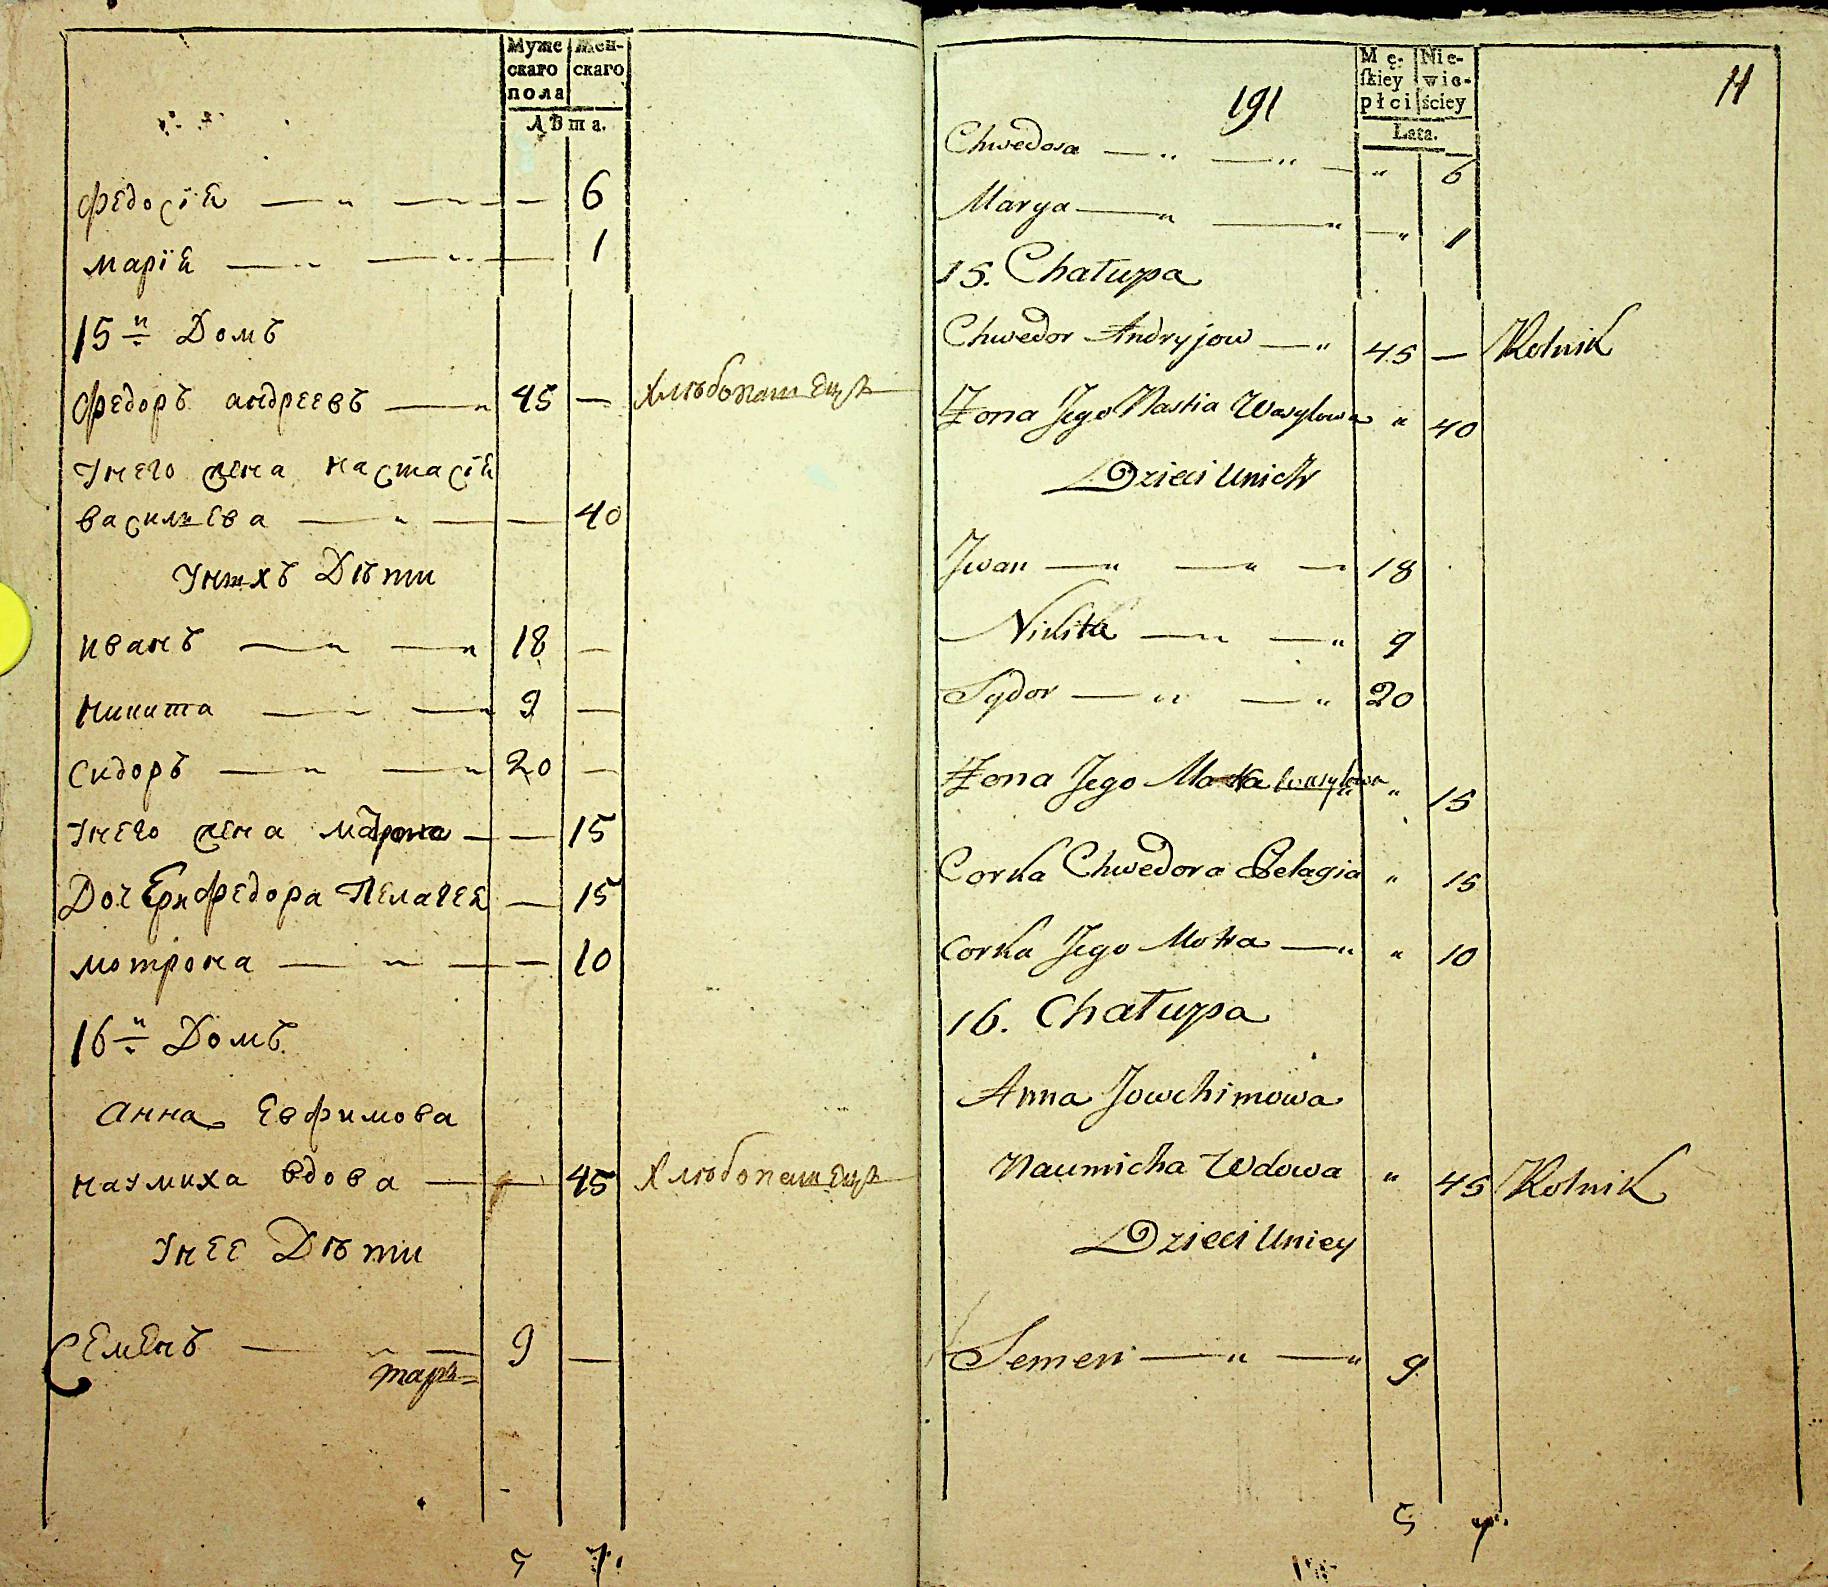 Муже
скаго
пола
Жен-
скаго
Лѣта.
Федосiя — „ — „ — — 6
Марiя — „ — „ — 1
15й Домъ
Федоръ Андреевъ — „ 45 — Хлѣбопашецъ
Унего жена Настасiя
Васильева — „ — — 40
Унихъ Дѣти
Иванъ — „ — „ 18 —
Никита — „ — „ 9 —
Сидоръ — „ — „ 20 —
Унего жена Матрона — — 15
Дочери Федора Пелагея — 15
Мотрона — „ — — 10
16й Домъ
Анна Евфимова
Наумиха вдова — — 45 Хлѣбопашецъ
Унее Дѣти
Семенъ — „ — 9 —
5 7.
191
11
Mę-
ſkiey
płci
Nie-
wie-
ściey
Lata.
Chwedosa — „ — „ — „ 6
Marya — „ — „ — „ 1
15. Chałupa
Chwedor Andryjow — „ 45 — Rolnik
Żona Jego Nastia Wasylowa „ 40
Dzieci Unich
Jwan — „ — „ — 18
Nikita — „ — „ 9
Sydor — „ — „ 20
Żona Jego Wasylowa „ 15
Corka Chwedora Pelagia „ 15
Corka Jego Motra — „ „ 10
16. Chałupa
Anna Jowchimowa
Naumicha Wdowa „ 45 Rolnik
Dzieci Uniey
Semen — „ — „ 9
5 7.